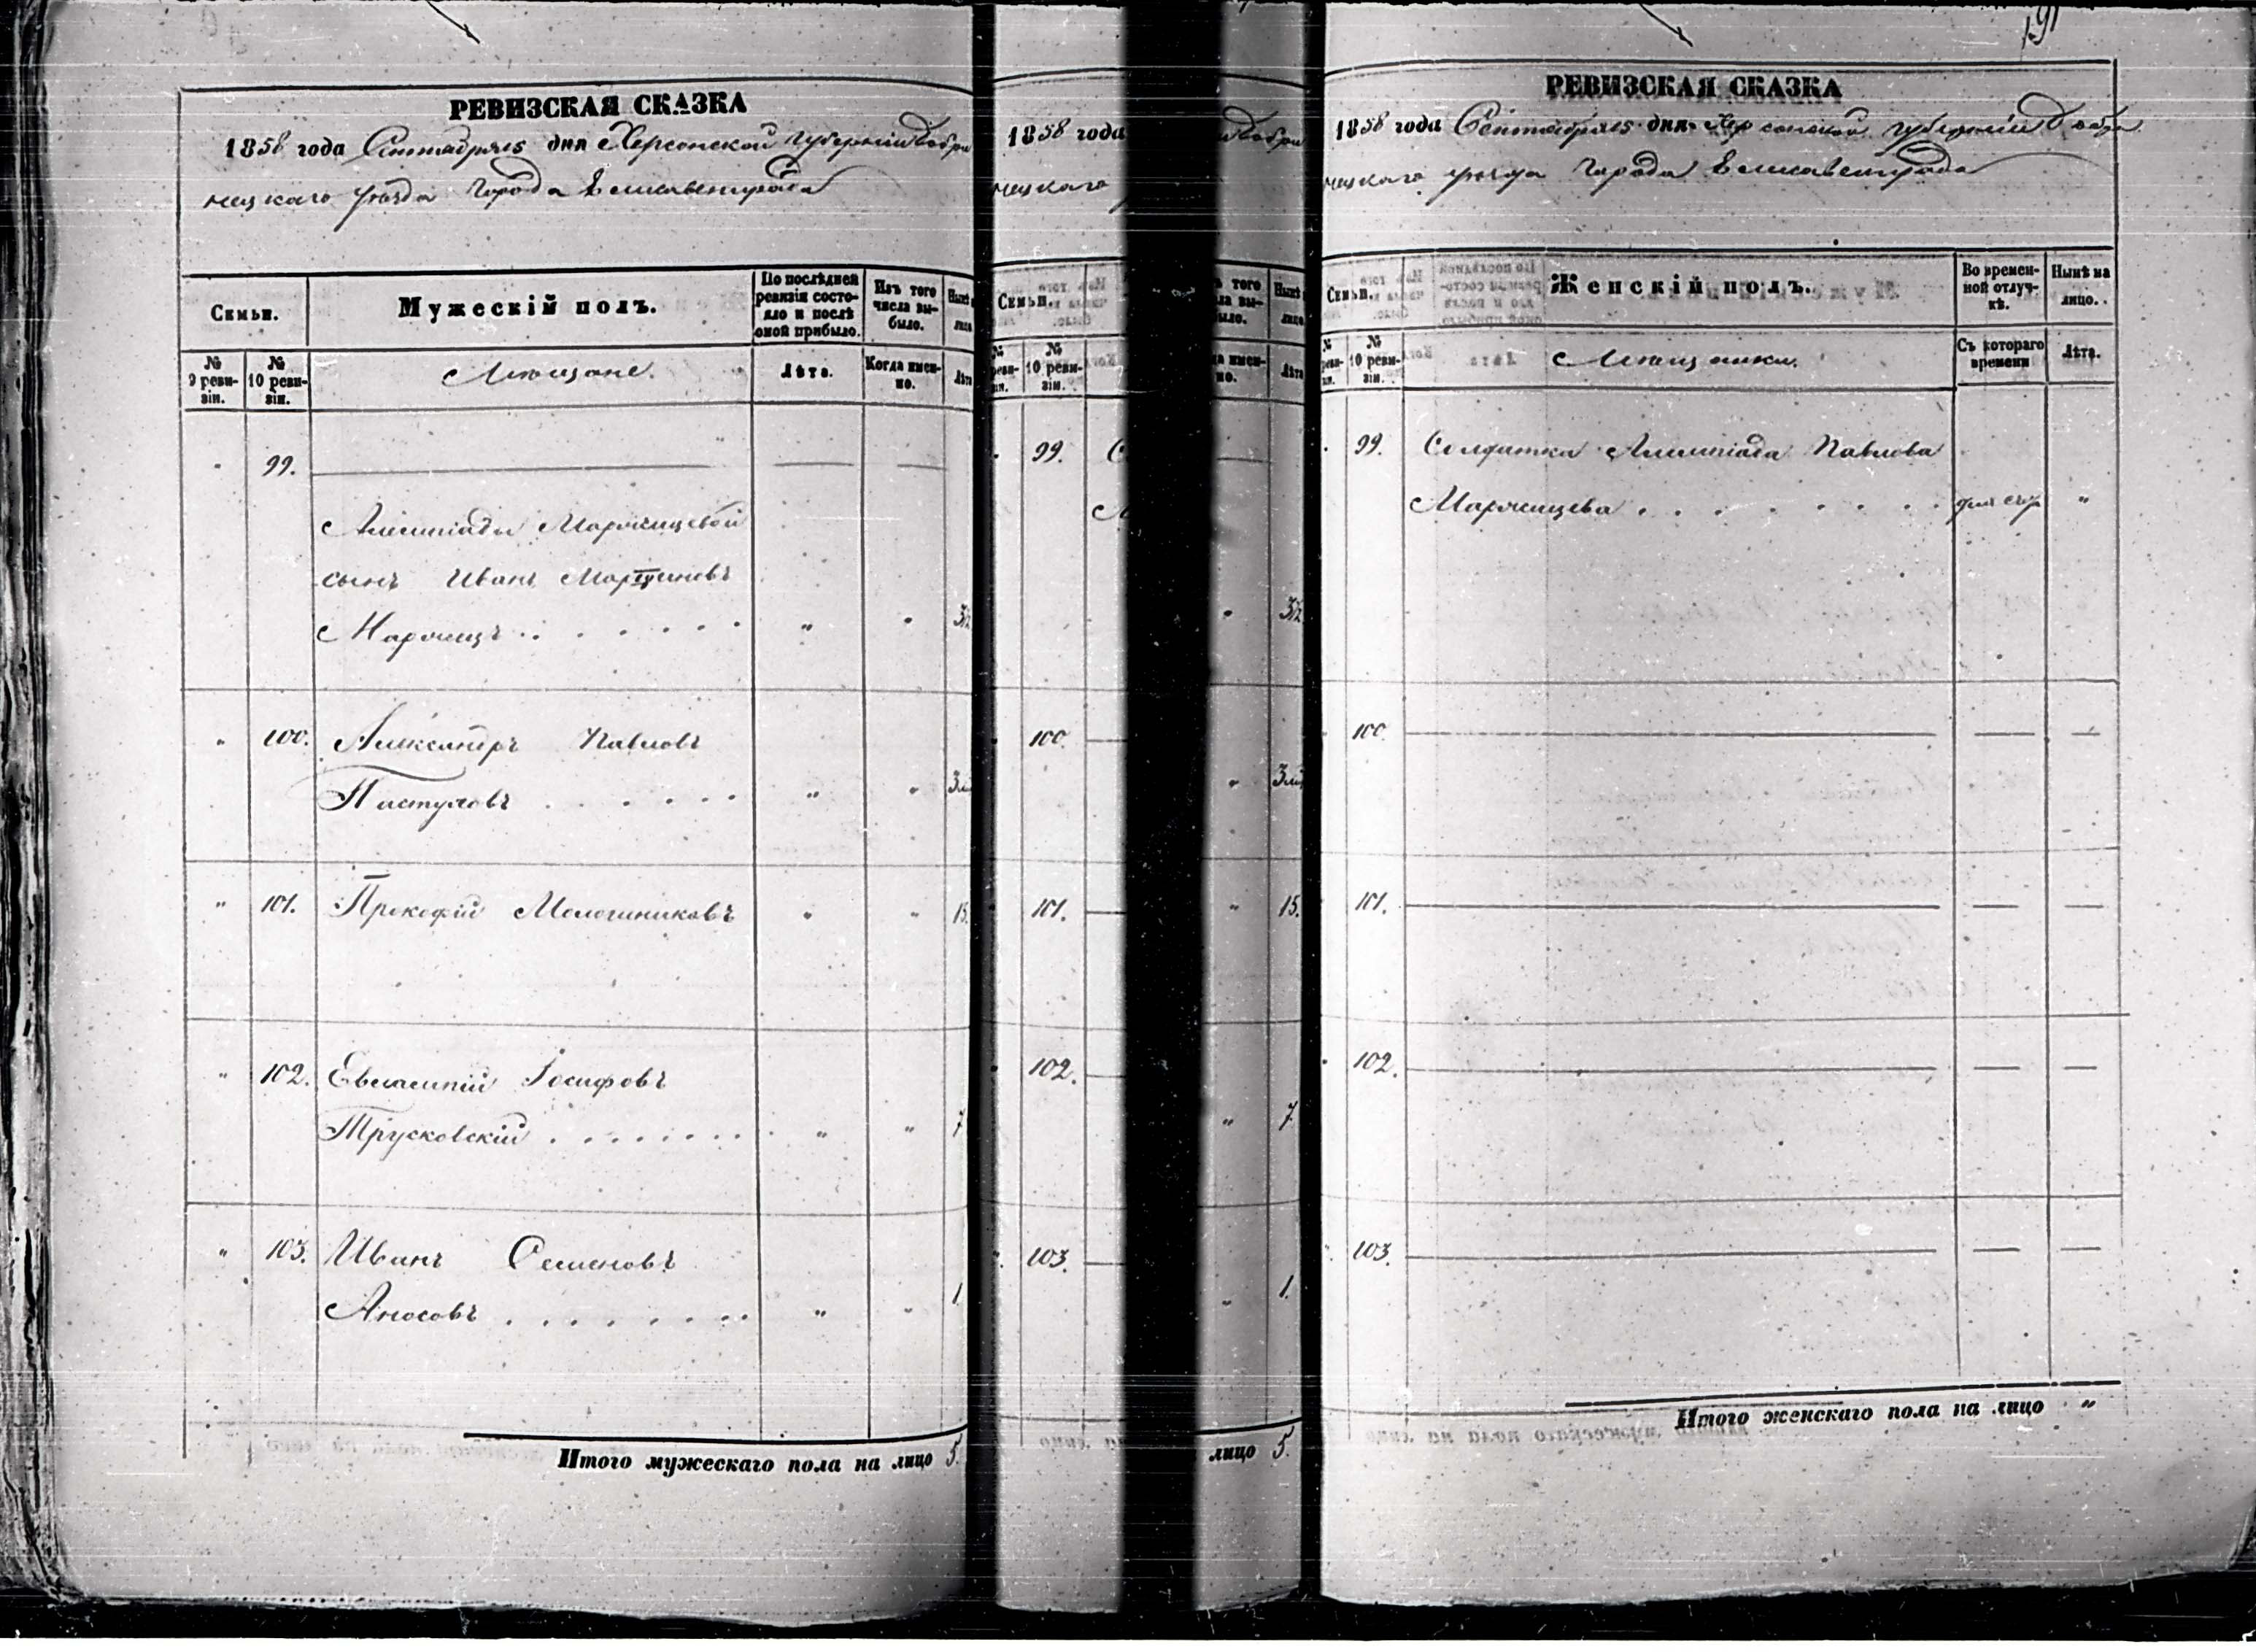 РЕВИЗСКАЯ СКАЗКА
1858 года Сентября 15 дня Херсонской губерніи Бобри
нецкаго уѣзда города Елисаветграда
Семьи.
Мужескій полъ.
По послѣдней ревизіи состояло и послѣ оной прибыло.
Изъ того числа выбыло.
Нынѣ
лицо
№ 9 ревизіи.
№ 10 ревизіи.
Мѣщане.
Лѣта.
Когда именно.
Лѣта
" 99.
Алимпіады Маржицевой
сынъ Иванъ Мартиновъ
Маржицъ . . . . . . . " "
" 100. Александръ Павловъ
Пастуховъ . . . . . . " "
" 101. Прокофій Мелошниковъ " " 15.
" 102. Евлампій Іосифовъ
Трусковскій . . . . . . . . " " 7
" 103. Иванъ Семеновъ
Аносовъ . . . . . . . . " " 1.
Итого мужескаго пола на лицо 5.
1858 года
нецкаго
Семьи.
10 ревизіи.
99.
100.
101.
102.
103.
15.
7.
1.
лицо 5.
191
РЕВИЗСКАЯ СКАЗКА
1858 года Сентября 15 дня Херсонской губерніи Бобри
нецкаго уѣзда города Елисаветграда
Семьи.
Женскій полъ.
Во временной отлучкѣ.
Нынѣ на лицо.
№ 10 ревизіи.
Мѣщанки.
Съ котораго времени
Лѣта.
99. Солдатка Алимпіада Павлова
Маржицева . . . . . . . . "
100.
101.
102.
103.
Итого женскаго пола на лицо "